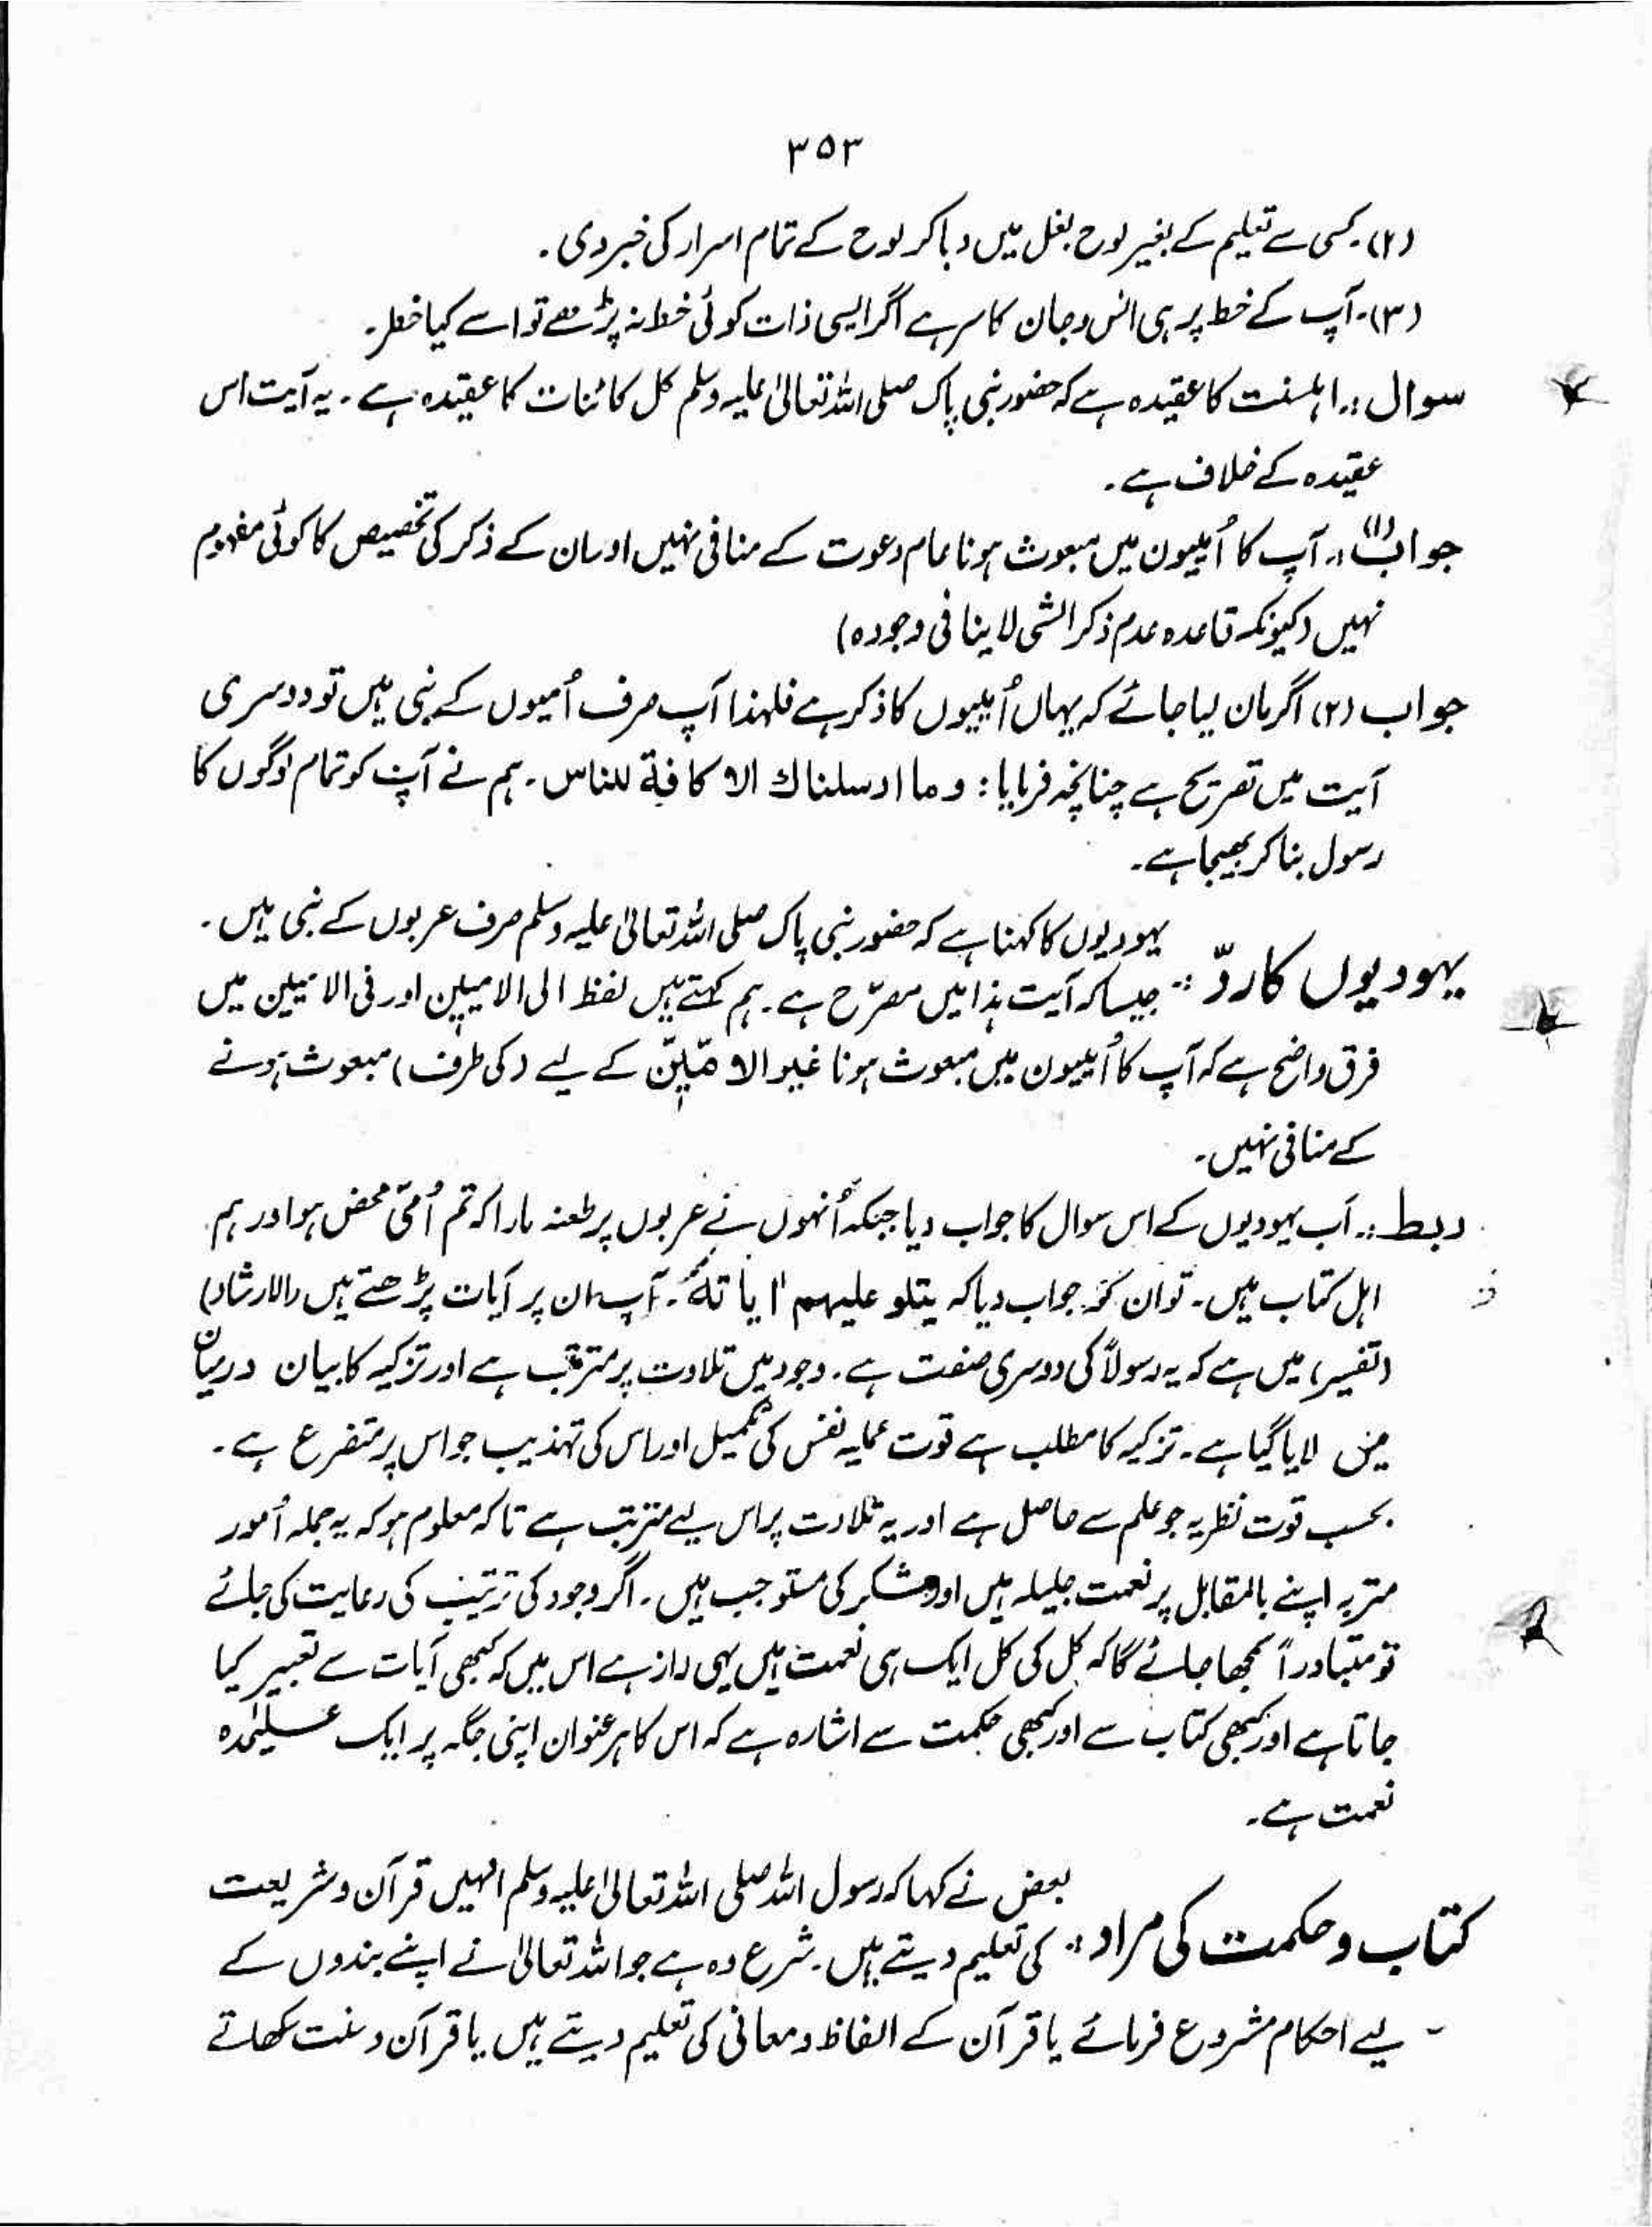 ۳۵۳
(۲)۔ کسی سے تعلیم کے بغیر لوح بغل میں دبا کر لوح کے تمام اسرار کی خبر دی ۔
(۳)۔ آپ کے خط پر ہی انس وجان کا سر ہے اگر ایسی ذات کوئی خط نہ پڑھے تو اسے کیا خطر۔
سوال :۔ اہلسنت کا عقیدہ ہے کہ حضور نبی پاک صلی اللہ تعالیٰ علیہ وسلم کل کائنات کا عقیدہ ہے ۔ یہ آیت اس
عقیدہ کے خلاف ہے ۔
جواب (۱) :۔ آپ کا اُمیّون میں مبعوث ہونا عام دعوت کے منافی نہیں اور ان کے ذکر کی تخصیص کا کوئی مفہوم
نہیں (کیونکہ قاعدہ عدم ذکر الشی لا ینافی وجودہ)
جواب (۲) اگر مان لیا جائے کہ یہاں اُمیّوں کا ذکر ہے فلہٰذا آپ صرف اُمیوں کے نبی ہیں تو دوسری
آیت میں تصریح ہے چنانچہ فرمایا : وما ارسلناك الا كافة للناس ۔ ہم نے آپ کو تمام لوگوں کا
رسول بنا کر بھیجا ہے ۔
یہودیوں کا کہنا ہے کہ حضور نبی پاک صلی اللہ تعالیٰ علیہ وسلم صرف عربوں کے نبی ہیں ۔
یہودیوں کا ردّ :۔ جیسا کہ آیت ہذا میں مصرّح ہے ۔ ہم کہتے ہیں لفظ الی الامیین اور فی الامیین میں
فرق واضح ہے کہ آپ کا اُمیّون میں مبعوث ہونا غیر الامّیّن کے لیے (کی طرف) مبعوث ہونے
کے منافی نہیں ۔
ربط :۔ اَب یہودیوں کے اس سوال کا جواب دیا جبکہ اُنہوں نے عربوں پر طعنہ مارا کہ تم اُمّی محض ہو اور ہم
اہل کتاب ہیں ۔ تو ان کو جواب دیا کہ یتلو علیہم اٰیاتہٖ ۔ آپ ان پر آیات پڑھتے ہیں (الارشاد)
(تفسیر) میں ہے کہ یہ رسولاً کی دوسری صفت ہے ۔ وجود میں تلاوت پر مترتب ہے اور تزکیہ کا بیان درمیان
میں لایا گیا ہے ۔ تزکیہ کا مطلب ہے قوت عملیہ نفس کی تکمیل اور اس کی تہذیب جو اس پر متفرع ہے ۔
بحسب قوت نظریہ جو علم سے حاصل ہے اور یہ تلاوت پر اس لیے مترتب ہے تاکہ معلوم ہو کہ یہ جملہ اُمور
مترتبہ اپنے بالمقابل پر نعمت جلیلہ ہیں اور شکر کی مستوجب ہیں ۔ اگر وجود کی ترتیب کی رعایت کی جائے
تو متبادراً سمجھا جائے گا کہ کل کی کل ایک ہی نعمت ہیں یہی راز ہے اس میں کہ کبھی آیات سے تعبیر کیا
جاتا ہے اور کبھی کتاب سے اور کبھی حکمت سے اشارہ ہے کہ اس کا ہر عنوان اپنی جگہ پر ایک علیٰحدہ
نعمت ہے ۔
بعض نے کہا کہ رسول اللہ صلی اللہ تعالیٰ علیہ وسلم انہیں قرآن و شریعت
کتاب و حکمت کی مراد :۔ کی تعلیم دیتے ہیں ۔ شرع وہ ہے جو اللہ تعالیٰ نے اپنے بندوں کے
لیے احکام مشروع فرمائے یا قرآن کے الفاظ و معانی کی تعلیم دیتے ہیں یا قرآن و سنت سکھاتے